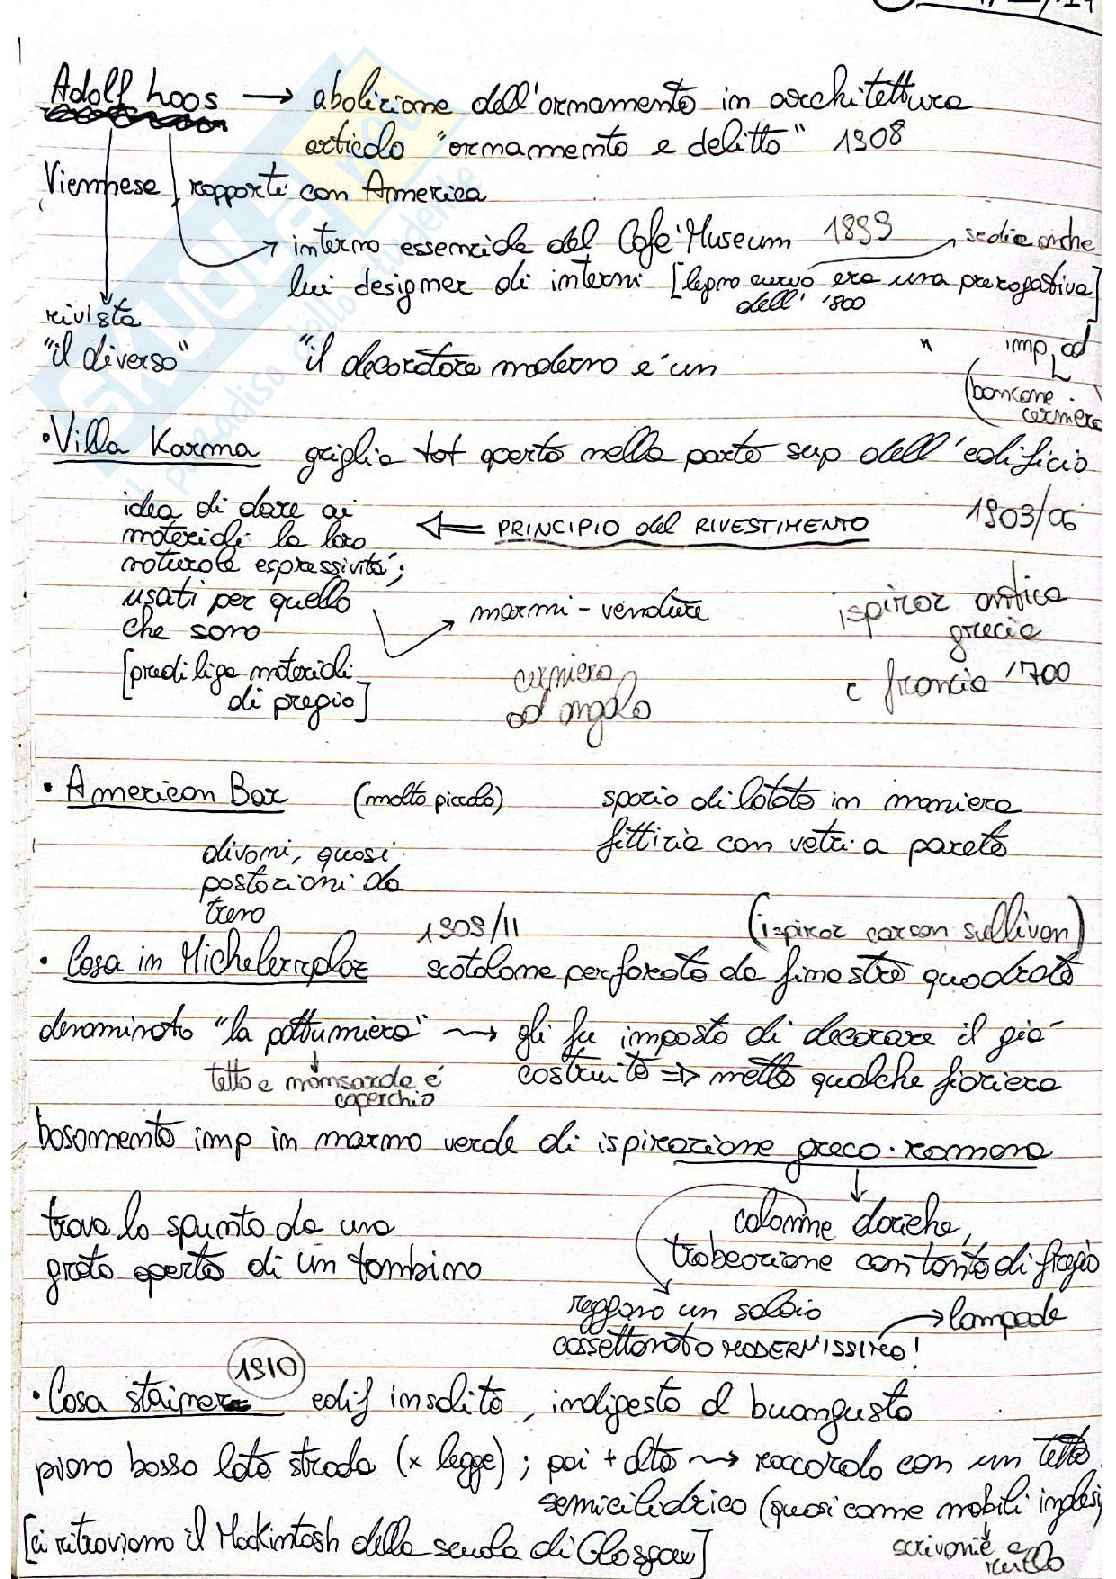 Adolf Loos → abolizione dell'ornamento in architettura
articolo "ornamento e delitto" 1908
Viennese, rapporti con America
→ interno essenziale del Cafè Museum 1899 → sedie anche
lui designer di interni [legno curvo era una prerogativa]
dell' '800
rivista
"il diverso" "il decoratore moderno è un " imp. ad
(bancone.
camera
• Villa Karma griglia tot aperta nella parte sup dell'edificio
idea di dare ai
materiali la loro ⇐ PRINCIPIO del RIVESTIMENTO 1903/06
naturale espressività;
usati per quello → marmi-venature ispiraz antica
che sono grecia
[predilige materiali cerniera e francia '700
di pregio] ad angolo
• American Bar (molto piccolo) spazio dilatato in maniera
divani, quasi fittizia con vetri a parete
postazioni da
treno
1909/11 (ispiraz carson sullivan)
• Casa in Michelerzplaz scatolame perforato da finestre quadrate
denominato "la pattumiera" → gli fu imposto di decorare il già
tetto e mansarda è costruito => mette qualche fioriera
coperchio
basamento imp in marmo verde di ispirazione greco-romana
trova lo spunto da una colonne doriche,
grata aperta di un tombino trabeazione con tanto di fregio
reggono un solaio → lampade
cassettonato MODERNISSIMO!
1910
• Casa stainer edif insolito, indigesto al buongusto
piano basso lato strada (x legge); poi + alto → raccordo con un tetto
semicilidrico (quasi come mobili inglesi
[ci ritroviamo il Mackintosh della scuola di Glasgow] scrivanie e